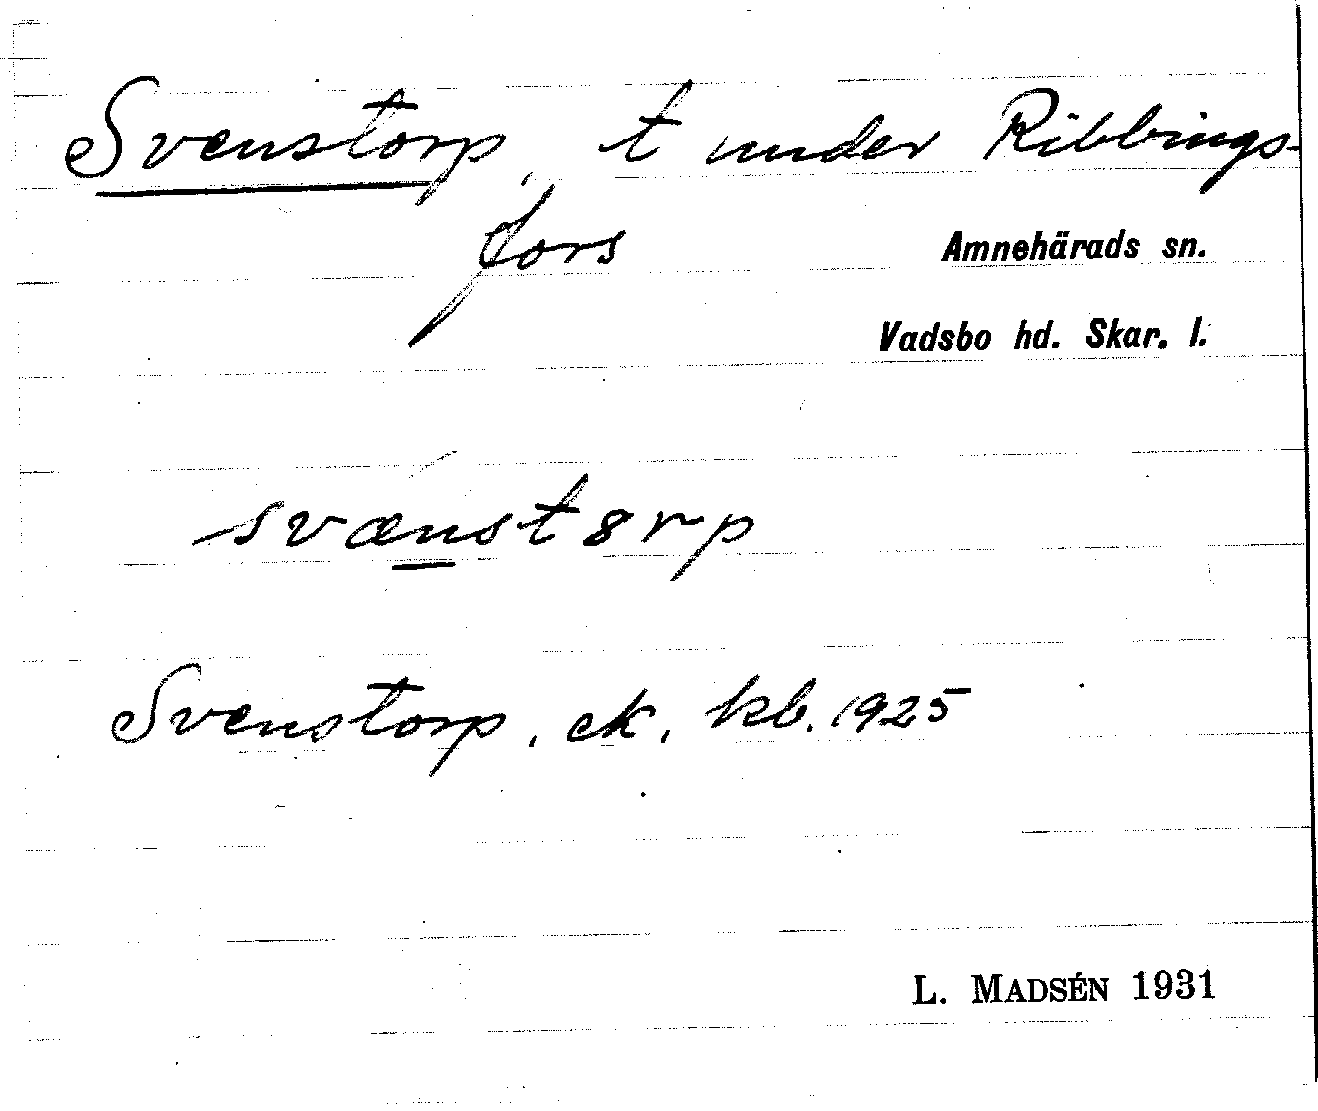 Svenstorp, t under Ribbings-
fors
Amnehärads sn.
Vadsbo hd. Skar. l.
svænst8rp
Svenstorp, ek, kb. 1925
L. MADSÉN 1931